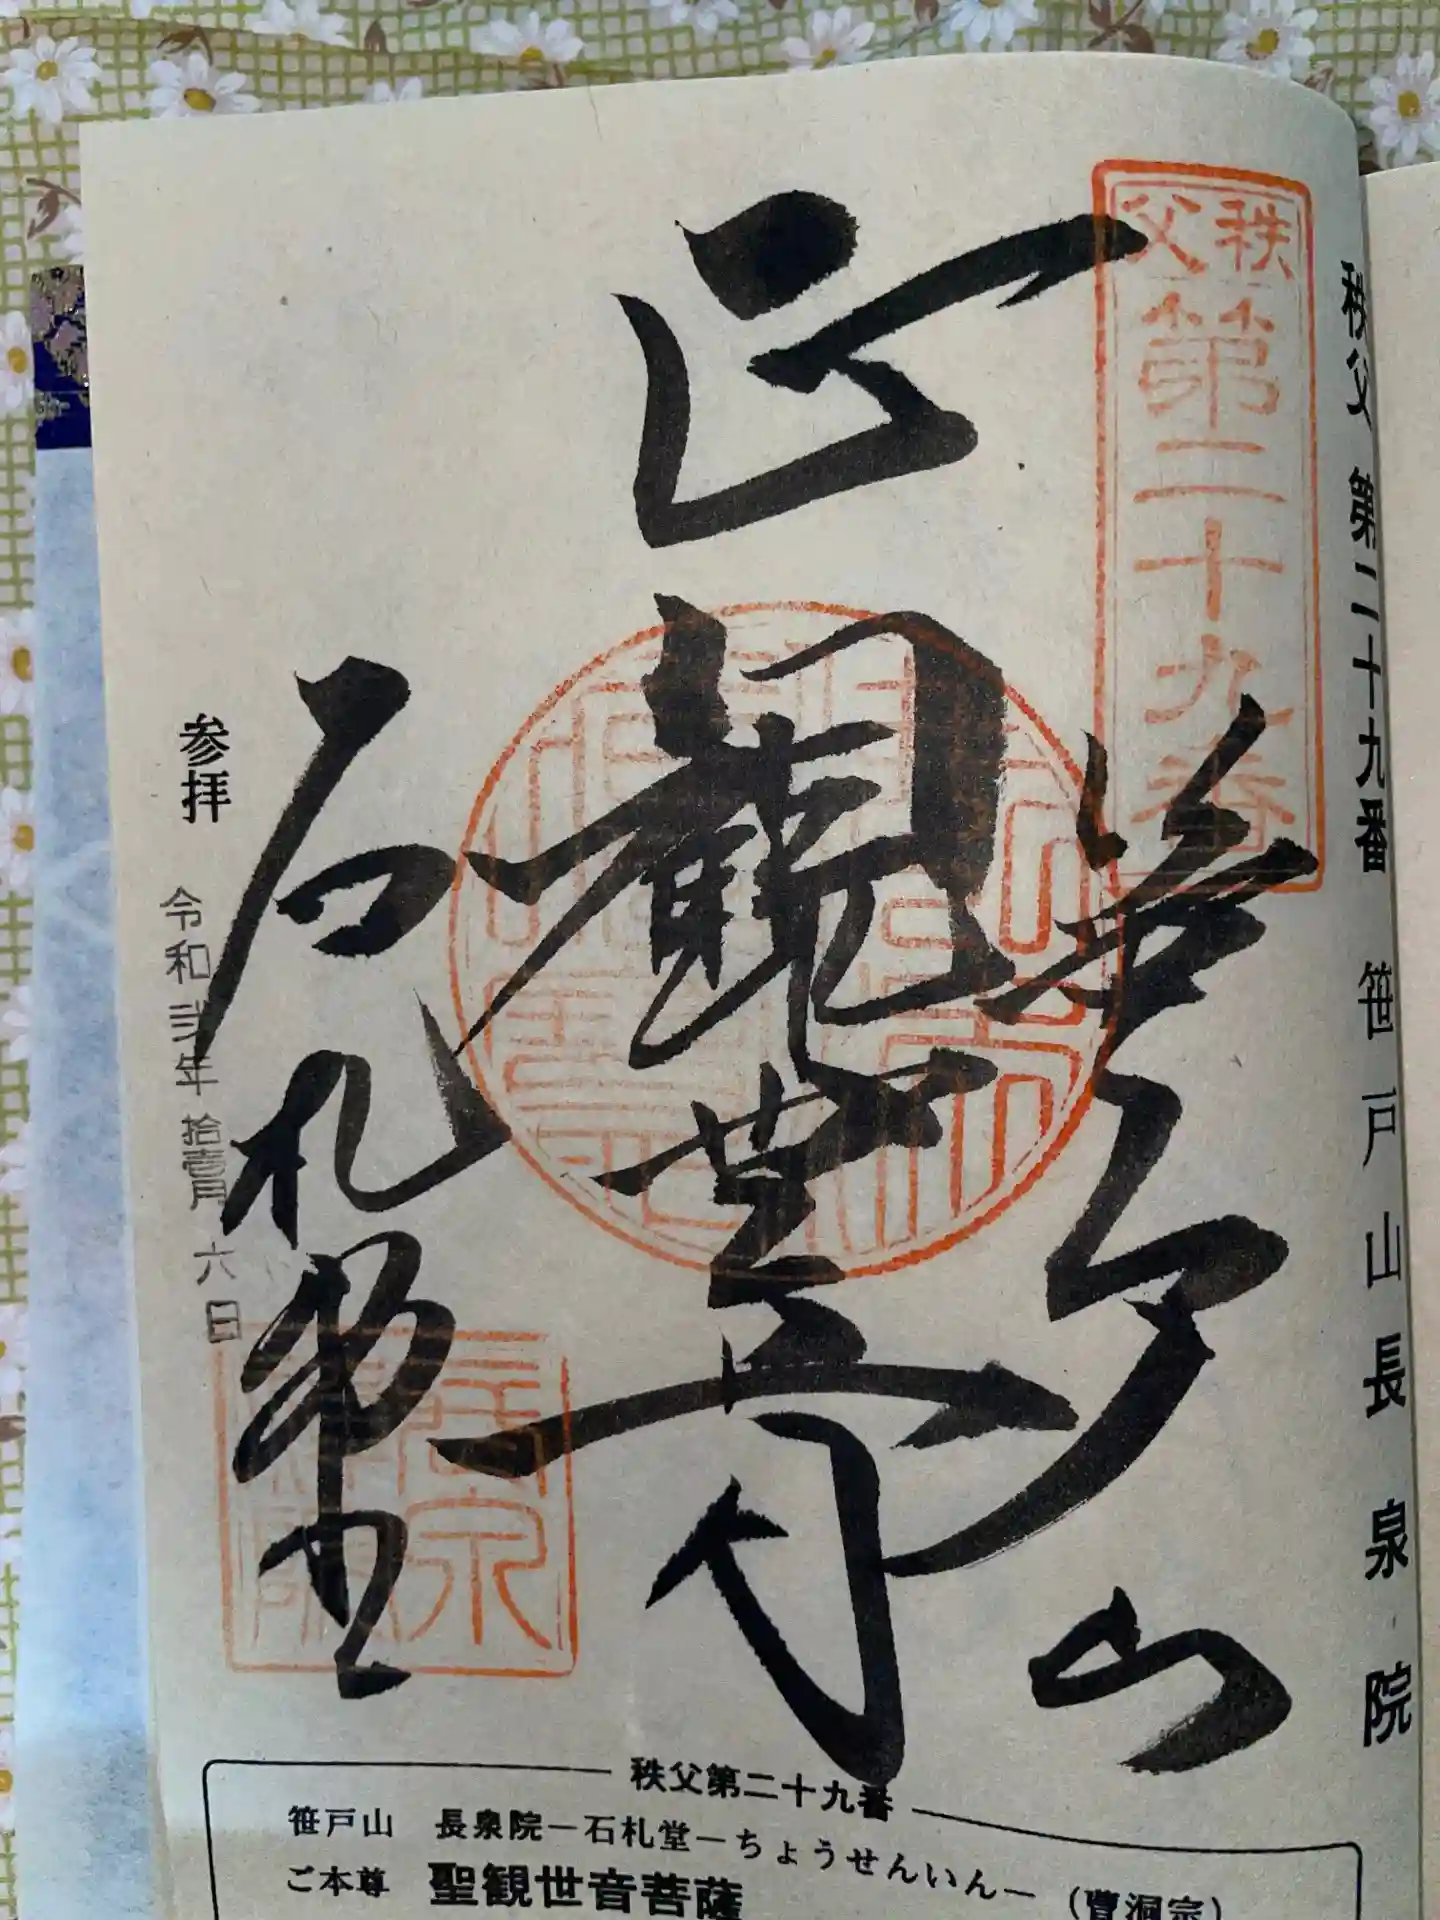 秩父 第二十九番 笹戸山長泉院
秩父
第二十九番
笹戸山
正観世音
石札堂
参拝 令和弐年拾壱月六日
長泉
秩父第二十九番
笹戸山 長泉院―石札堂―ちょうせんいん―
ご本尊 聖観世音菩薩 (曹洞宗)